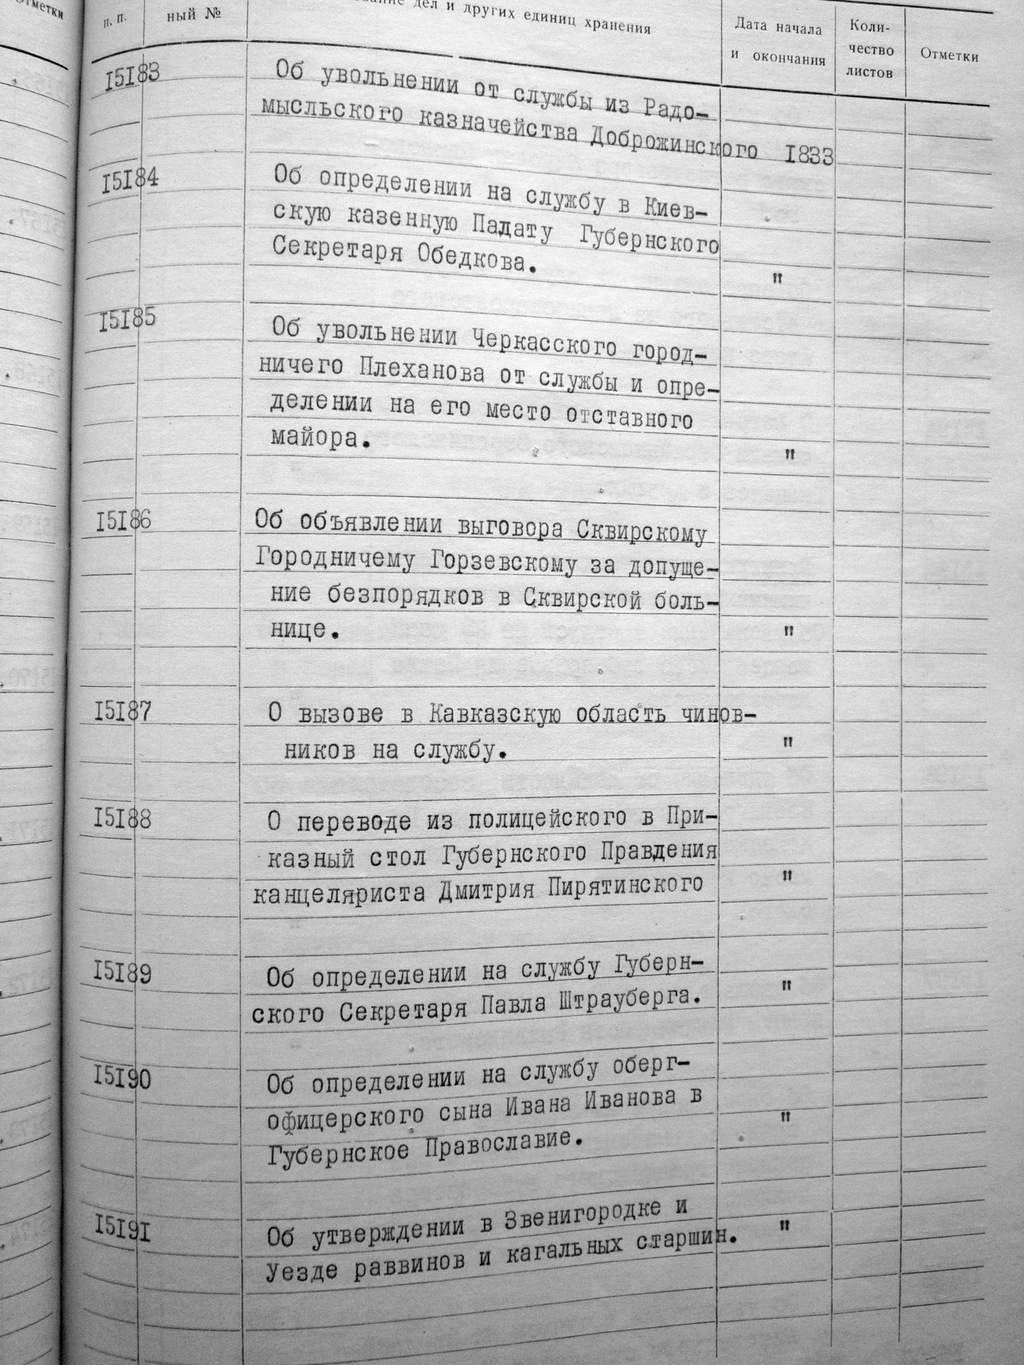 Отметки
п. п.
ный №
дел и других единиц хранения
Дата начала
и окончания
Коли-
чество
листов
Отметки
I5I83
Об увольнении от службы из Радо-
мысльского казначейства Доброжинского 1833
I5I84
Об определении на службу в Киев-
скую казенную Палату Губернского
Секретаря Обедкова.
"
I5I85
Об увольнении Черкасского город-
ничего Плеханова от службы и опре-
делении на его место отставного
майора.
"
I5I86
Об объявлении выговора Сквирскому
Городничему Горзевскому за допуще-
ние безпорядков в Сквирской боль-
нице.
"
I5I87
О вызове в Кавказскую область чинов-
ников на службу.
"
I5I88
О переводе из полицейского в При-
казный стол Губернского Правдения
канцеляриста Дмитрия Пирятинского
"
I5I89
Об определении на службу Губерн-
ского Секретаря Павла Штрауберга.
"
I5I90
Об определении на службу оберг-
офицерского сына Ивана Иванова в
Губернское Православие.
"
I5I9I
Об утверждении в Звенигородке и
Уезде раввинов и кагальных старшин.
"